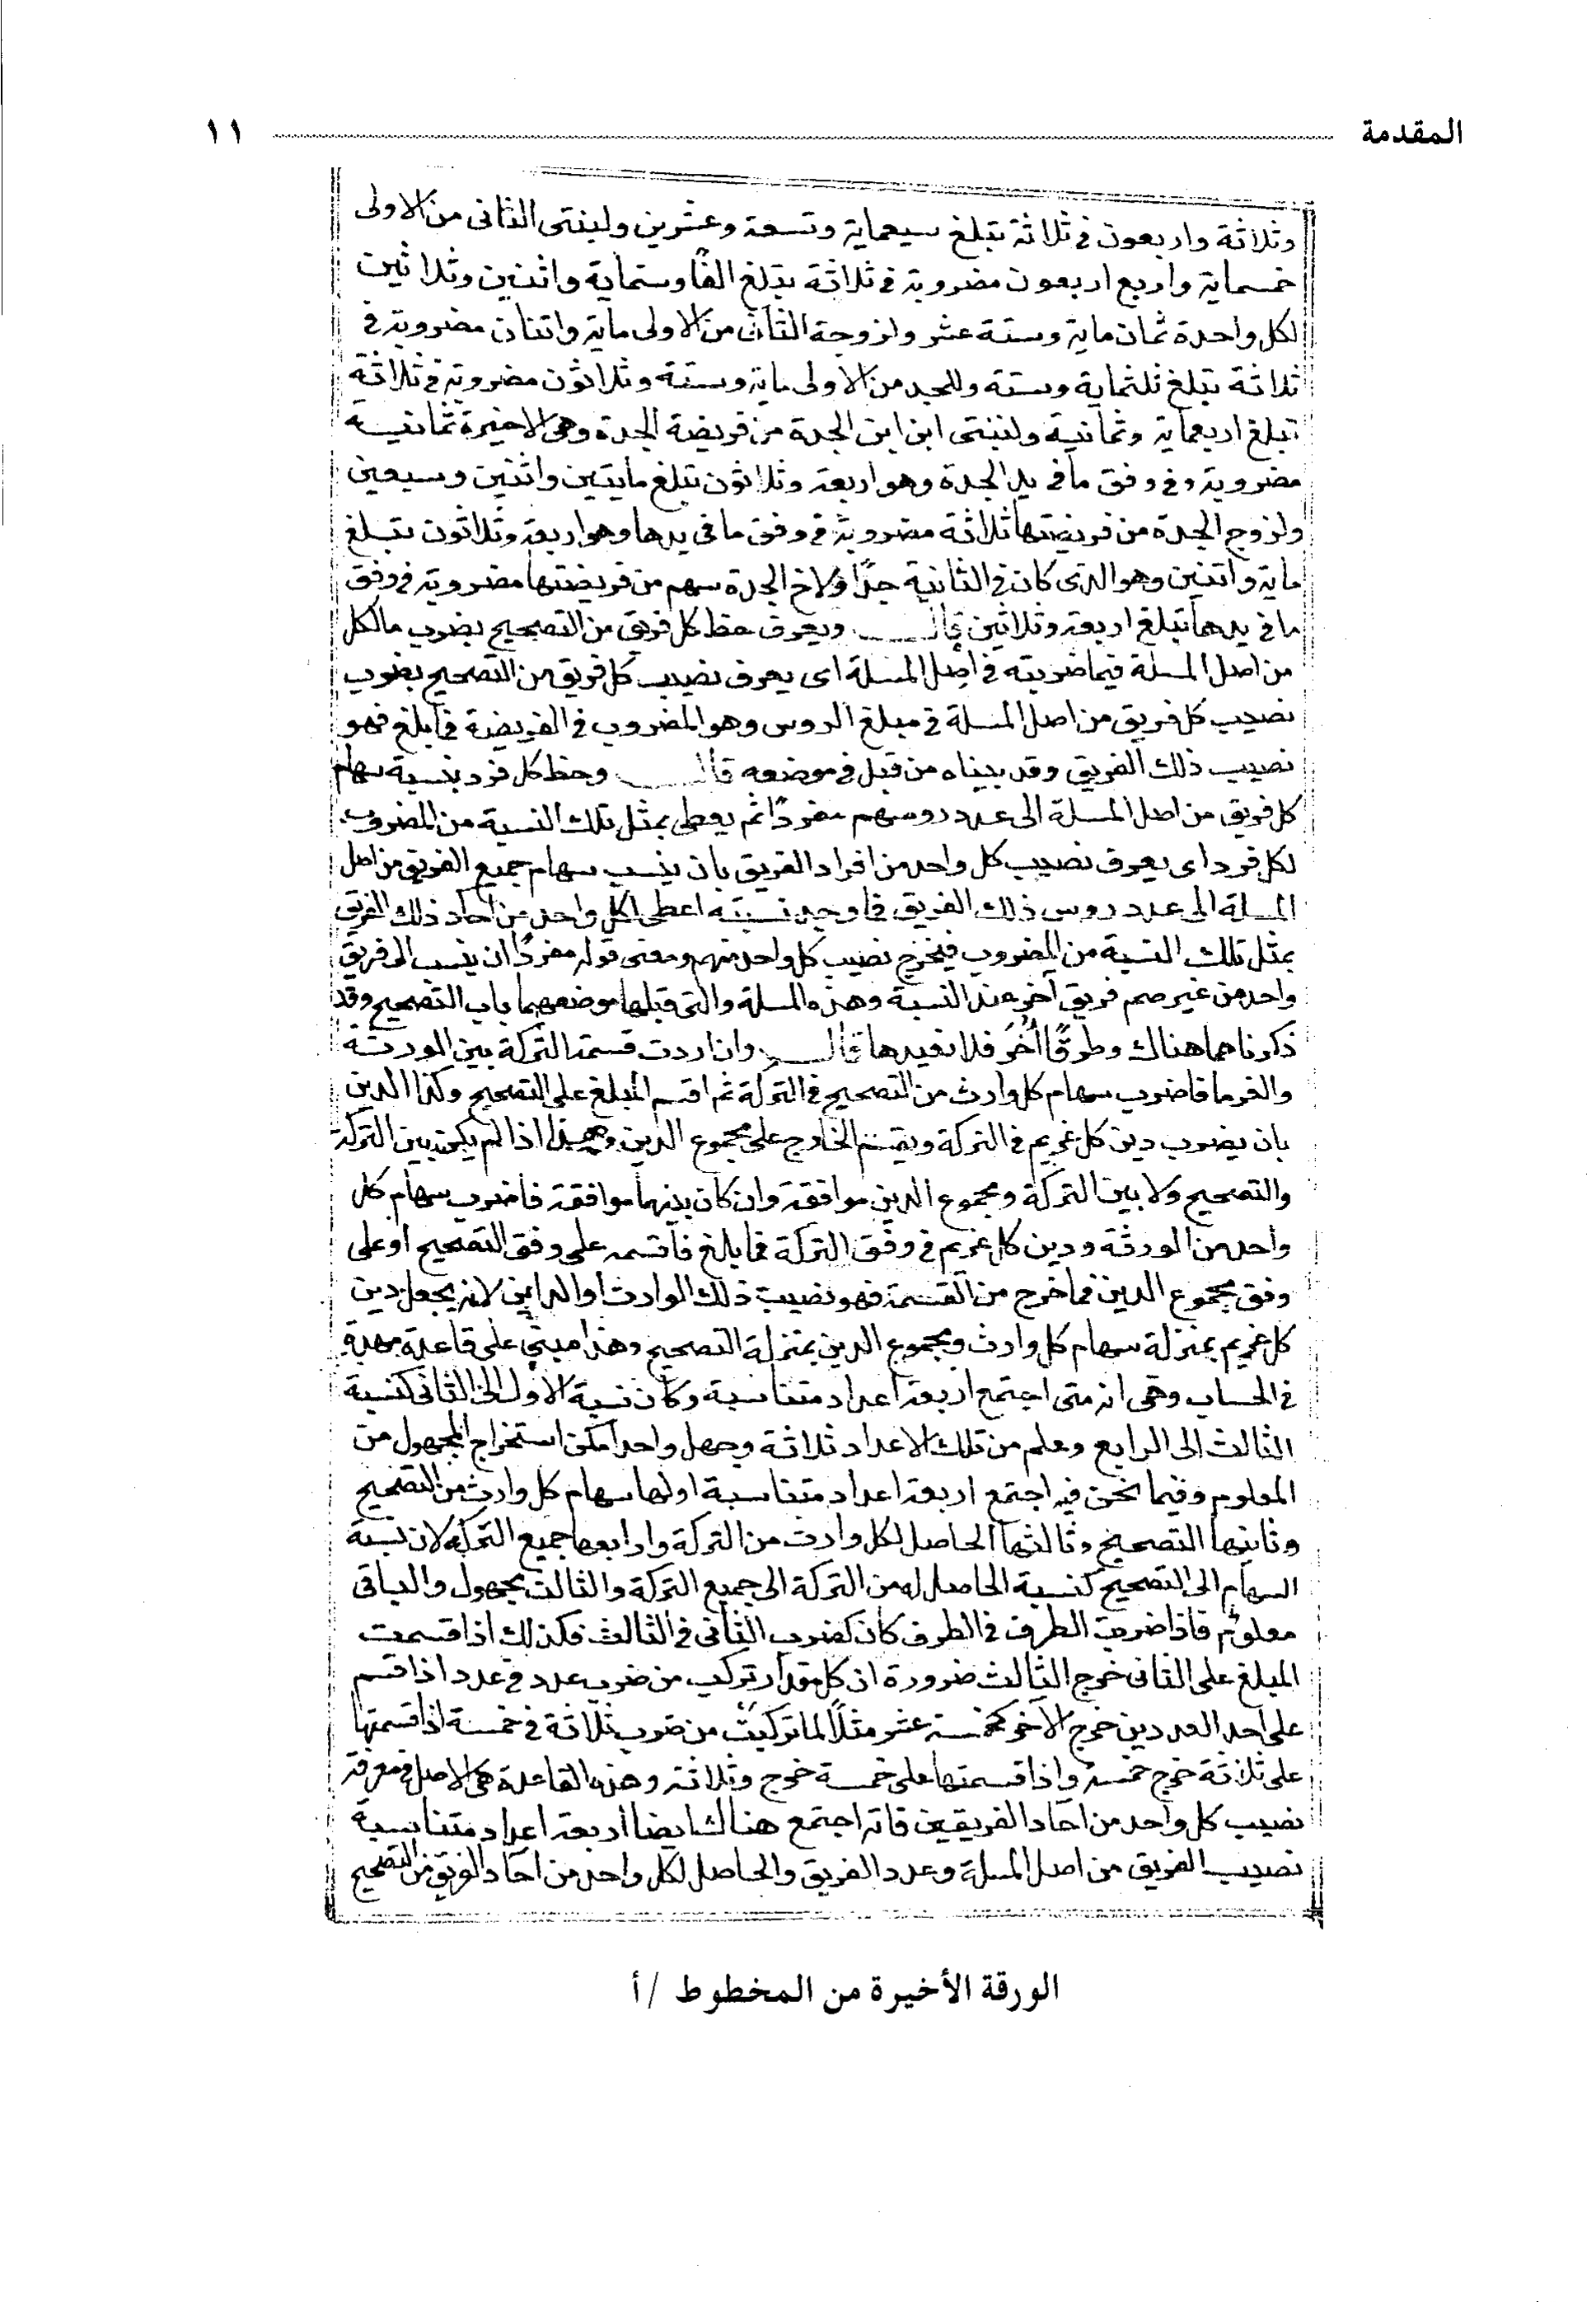 المقدمة ١١
وثلاثة واربعون في ثلاثة تبلغ سبعماية وتسعة وعشرين ولبنتى الثانى من الاولى
خمسماية واربع اربعون مضروبة في ثلاثة تبلغ الفًا وستماية واثنين وثلاثين
لكل واحدة ثمان ماية وستة عشر ولزوجة الثانى من الاولى ماية واثنان مضروبة في
ثلاثة تبلغ ثلثماية وستة وللجد من الاولى ماية وستة وثلاثون مضروبة في ثلاثة
تبلغ اربعماية وثمانية ولبنتى ابن ابن الجدة من فريضة الجدة وهى الاخيرة ثمانية
مضروبة في وفق ما في يد الجدة وهو اربعة وثلاثون تبلغ مايتين واثنين وسبعين
ولزوج الجدة من فريضتها ثلاثة مضروبة في وفق ما في يدها وهو اربعة وثلاثون تبلغ
ماية واثنين وهو الذى كان في الثانية جدًا ولاخ الجدة سهم من فريضتها مضروبة في وفق
ما في يدها تبلغ اربعة وثلاثين قال ويعرف حظ كل فريق من التصحيح بضرب ما لكل
من اصل المسلة فيما ضربته في اصل المسلة اى يعرف نصيب كل فريق من التصحيح بضرب
نصيب كل فريق من اصل المسلة في مبلغ الروس وهو المضروب في الفريضة فما بلغ فهو
نصيب ذلك الفريق وقد بيناه من قبل في موضعه قال وحظ كل فرد بنسبة سهام
كل فريق من اصل المسلة الى عدد روسهم مفردًا ثم يعطى بمثل تلك النسبة من المضروب
لكل فرد اى يعرف نصيب كل واحد من افراد الفريق بان ينسب سهام جميع الفريق من اصل
المسلة الى عدد روس ذلك الفريق فما وجد نسبته اعطى لكل واحد من احاد ذلك الفريق
بمثل تلك النسبة من المضروب فيخرج نصيب كل واحد منهم ومعنى قوله مفردًا ان ينسب الى فريق
واحد من غير ضم فريق اخر عند النسبة وهذه المسلة والتى قبلها موضعهما باب التصحيح وقد
ذكرناهما هناك وطرقًا اُخَر فلا نعيدها قال وان اردت قسمة التركة بين الورثة
والغرما فاضرب سهام كل وارث من التصحيح في التركة ثم اقسم المبلغ على التصحيح وكذا الدين
بان يضرب دين كل غريم في التركة ويقسم الخارج على مجموع الدين وهذا اذا لم يكن بين التركة
والتصحيح ولا بين التركة ومجموع الدين موافقة وان كان بينهما موافقة فاضرب سهام كل
واحد من الورثة ودين كل غريم في وفق التركة فما بلغ فاقسمه على وفق التصحيح او على
وفق مجموع الدين فما خرج من القسمة فهو نصيب ذلك الوارث او الداين لانه يجعل دين
كل غريم بمنزلة سهام كل وارث ومجموع الدين بمنزلة التصحيح وهذا مبنى على قاعدة ممهدة
في الحساب وهى انه متى اجتمع اربعة اعداد متناسبة وكان نسبة الاول الى الثانى كنسبة
الثالث الى الرابع وعلم من تلك الاعداد ثلاثة وجهل واحد امكن استخراج المجهول من
المعلوم وفيما نحن فيه اجتمع اربعة اعداد متناسبة اولها سهام كل وارث من التصحيح
وثانيها التصحيح وثالثها الحاصل لكل وارث من التركة ورابعها جميع التركة لان نسبة
السهام الى التصحيح كنسبة الحاصل له من التركة الى جميع التركة والثالث مجهول والباقى
معلوم فاذا ضربت الطرف في الطرف كان كضرب الثانى في الثالث فكذلك اذا قسمت
المبلغ على الثانى خرج الثالث ضرورة ان كل مقدار تركب من ضرب عدد في عدد اذا قسم
على احد العددين خرج الاخر كخمسة عشر مثلًا لما تركبت من ضرب ثلاثة في خمسة اذا قسمتها
على ثلاثة خرج خمسة واذا قسمتها على خمسة خرج وثلاثة وهذه القاعدة هى الاصل في معرفة
نصيب كل واحد من احاد الفريقين فانه اجتمع هناك ايضا اربعة اعداد متناسبة
نصيب الفريق من اصل المسلة وعدد الفريق والحاصل لكل واحد من احاد الفريق من التصحيح
الورقة الأخيرة من المخطوط /أ